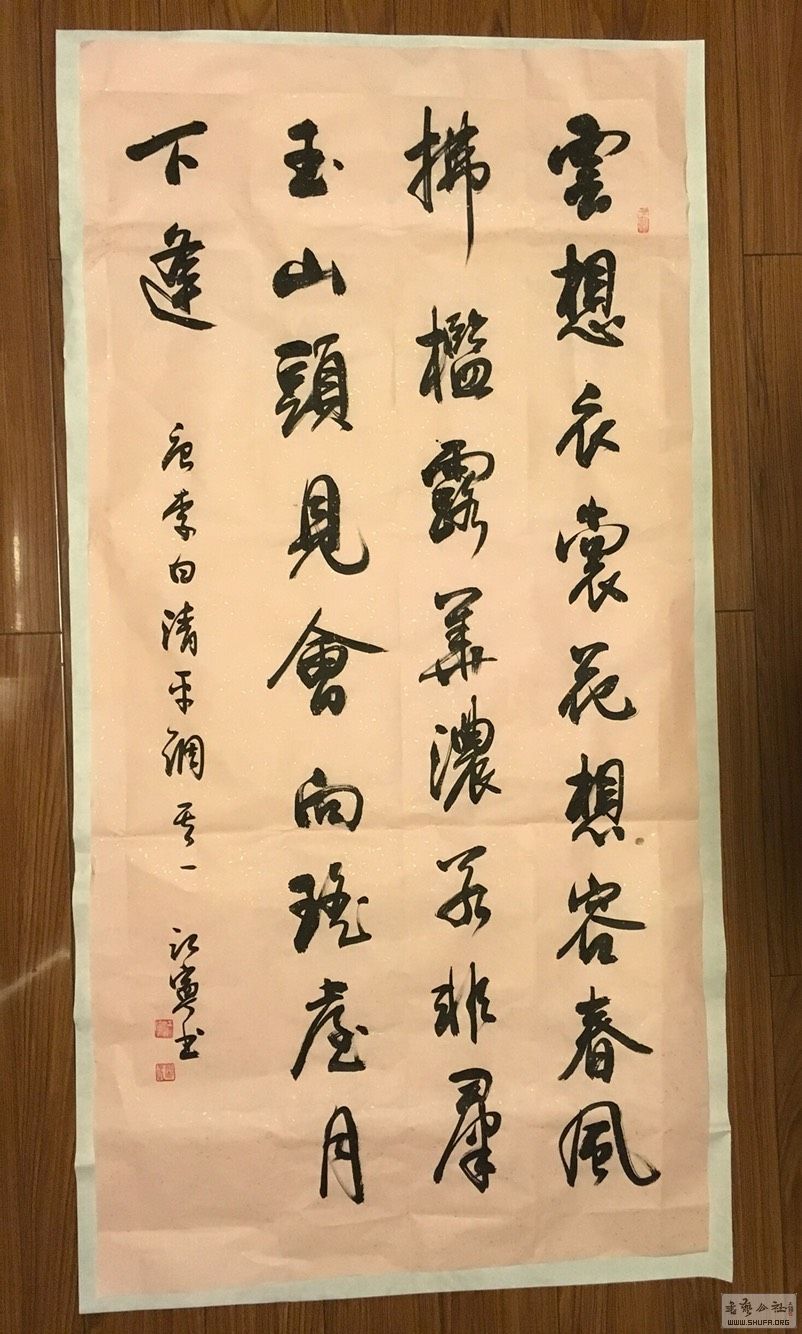 雲想衣裳花想容春風
拂檻露華濃若非羣
玉山頭見會向瑤臺月
下逢
唐李白清平調其一
書
書藝公社
WWW.SHUFA.ORG